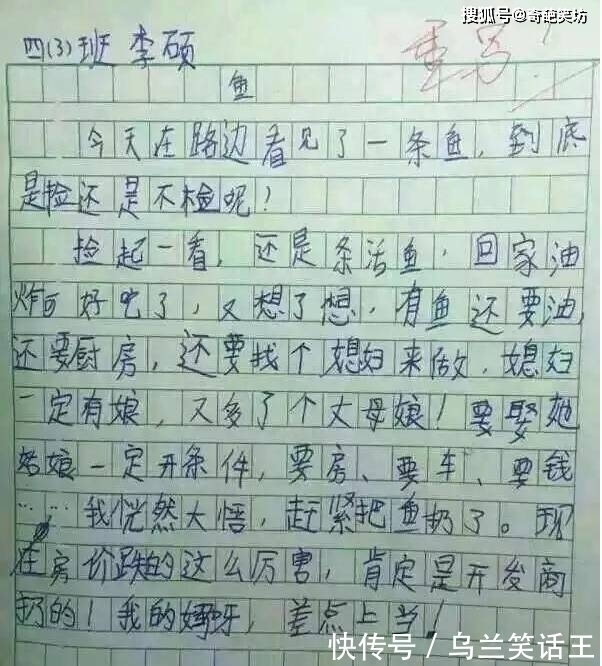 搜狐号@奇葩笑坊
四(3)班 李硕
重写!
鱼
今天在路边看见了一条鱼,到底
是捡还是不检呢?
捡起一看,还是条活鱼,回家油
炸可好吃了,又想了想,有鱼还要油,
还要厨房,还要找个媳妇来做,媳妇
一定有娘,又多了个丈母娘!要娶她
姑娘一定开条件,要房、要车、要钱
……我恍然大悟,赶紧把鱼扔了。现
在房价跌的这么厉害,肯定是开发商
扔的!我的妈呀,差点上当!
快传号/乌兰笑话王